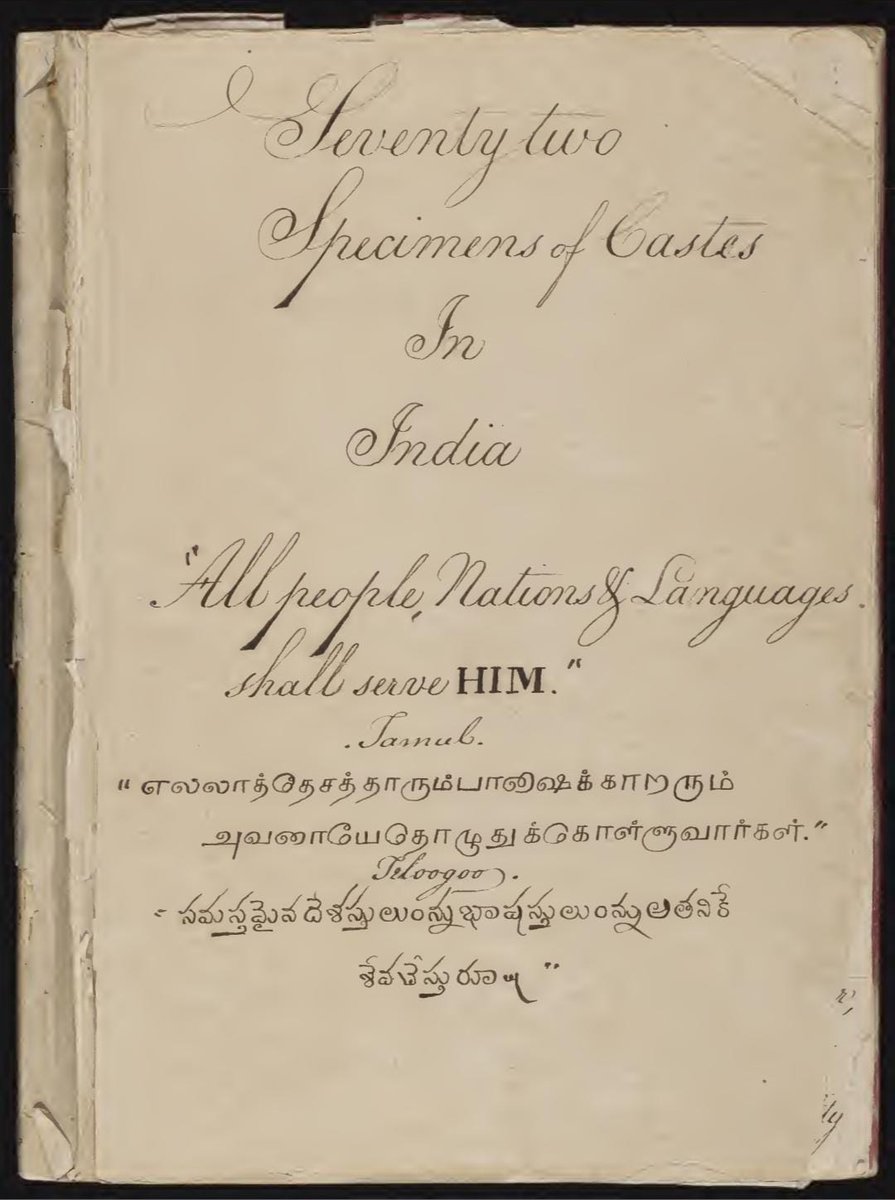 Seventy two
Specimens of Castes
In
India
"All people, Nations & Languages.
shall serve HIM."
. Tamul.
"எல்லாத்தேசத்தாரும்பாஷைக்காறரும்
அவரையேதொழுதுக்கொள்ளுவார்கள்."
Teloogoo.
సమస్తమైనదేశస్తులుంన్నుభాషస్తులుంన్నుఅతనికే